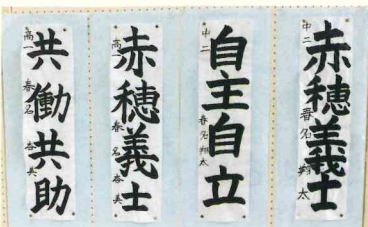 赤穂義士
中二 春名 翔太
自主自立
中二 春名 翔太
赤穂義士
高一 春名 杏美
共働共助
高一 春名 杏美